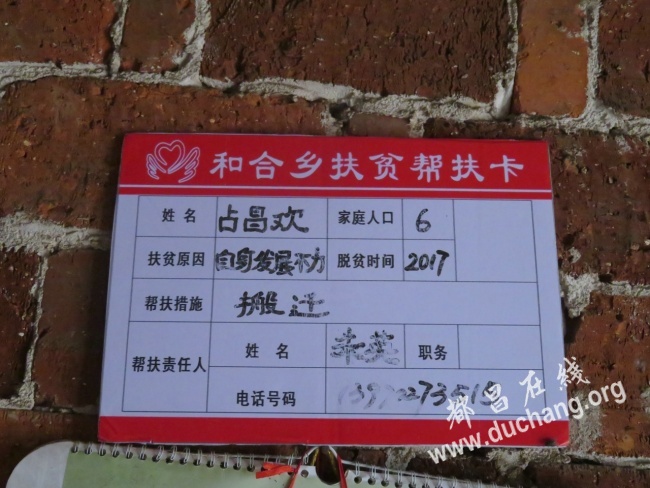 和合乡扶贫帮扶卡
姓名 占昌欢 家庭人口 6
扶贫原因 自身发展不力 脱贫时间 2017
帮扶措施 搬迁
帮扶责任人 姓名 英 职务
电话号码
都昌在线
www.duchang.org